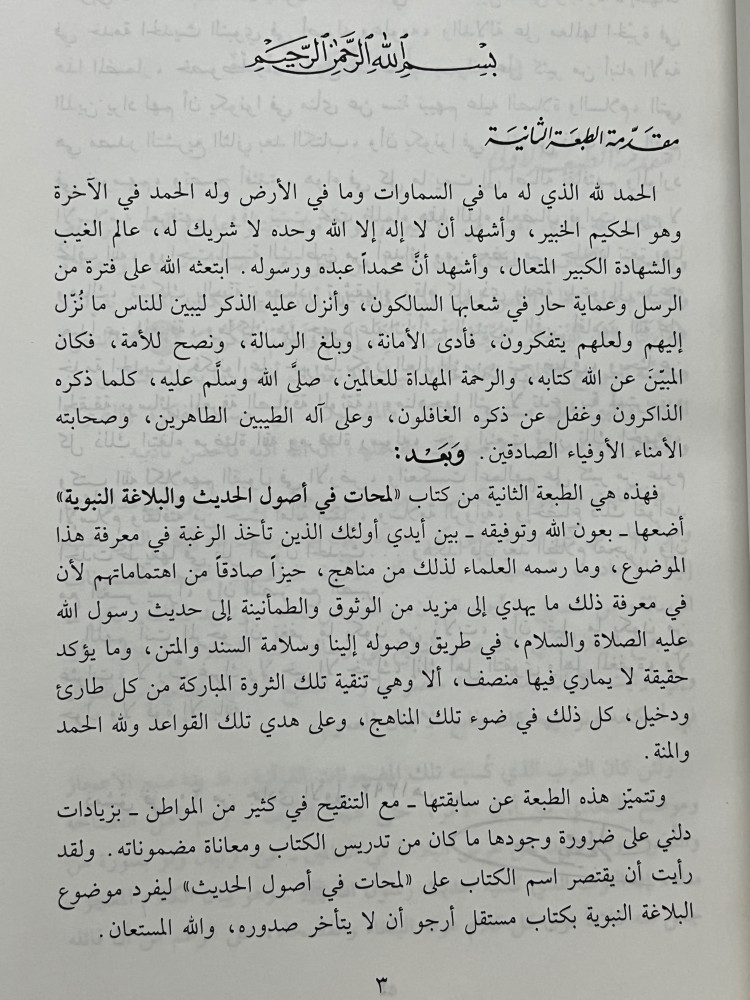 بسم الله الرحمن الرحيم
مقدّمة الطبعة الثانية
الحمد لله الذي له ما في السماوات وما في الأرض وله الحمد في الآخرة
وهو الحكيم الخبير، وأشهد أن لا إله إلا الله وحده لا شريك له، عالم الغيب
والشهادة الكبير المتعال، وأشهد أنَّ محمداً عبده ورسوله. ابتعثه الله على فترة من
الرسل وعماية حار في شعابها السالكون، وأنزل عليه الذكر ليبين للناس ما نُزّل
إليهم ولعلهم يتفكرون، فأدى الأمانة، وبلغ الرسالة، ونصح للأمة، فكان
المبيّنَ عن الله كتابه، والرحمة المهداة للعالمين، صلَّى الله وسلَّم عليه، كلما ذكره
الذاكرون وغفل عن ذكره الغافلون، وعلى آله الطيبين الطاهرين، وصحابته
الأمناء الأوفياء الصادقين. وَبَعَـد:
فهذه هي الطبعة الثانية من كتاب «لمحات في أصول الحديث والبلاغة النبوية»
أضعها ـ بعون الله وتوفيقه ـ بين أيدي أولئك الذين تأخذ الرغبة في معرفة هذا
الموضوع، وما رسمه العلماء لذلك من مناهج، حيزاً صادقاً من اهتماماتهم لأن
في معرفة ذلك ما يهدي إلى مزيد من الوثوق والطمأنينة إلى حديث رسول الله
عليه الصلاة والسلام، في طريق وصوله إلينا وسلامة السند والمتن، وما يؤكد
حقيقة لا يماري فيها منصف، ألا وهي تنقية تلك الثروة المباركة من كل طارئ
ودخيل، كل ذلك في ضوء تلك المناهج، وعلى هدي تلك القواعد ولله الحمد
والمنة.
وتتميّز هذه الطبعة عن سابقتها ـ مع التنقيح في كثير من المواطن ـ بزيادات
دلني على ضرورة وجودها ما كان من تدريس الكتاب ومعاناة مضموناته. ولقد
رأيت أن يقتصر اسم الكتاب على «لمحات في أصول الحديث» ليفرد موضوع
البلاغة النبوية بكتاب مستقل أرجو أن لا يتأخر صدوره، والله المستعان.
٣